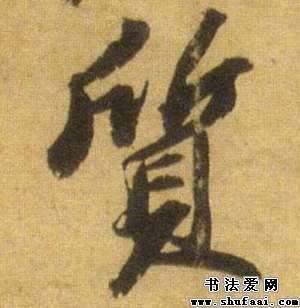 質
书法爱网
www.shufaai.com